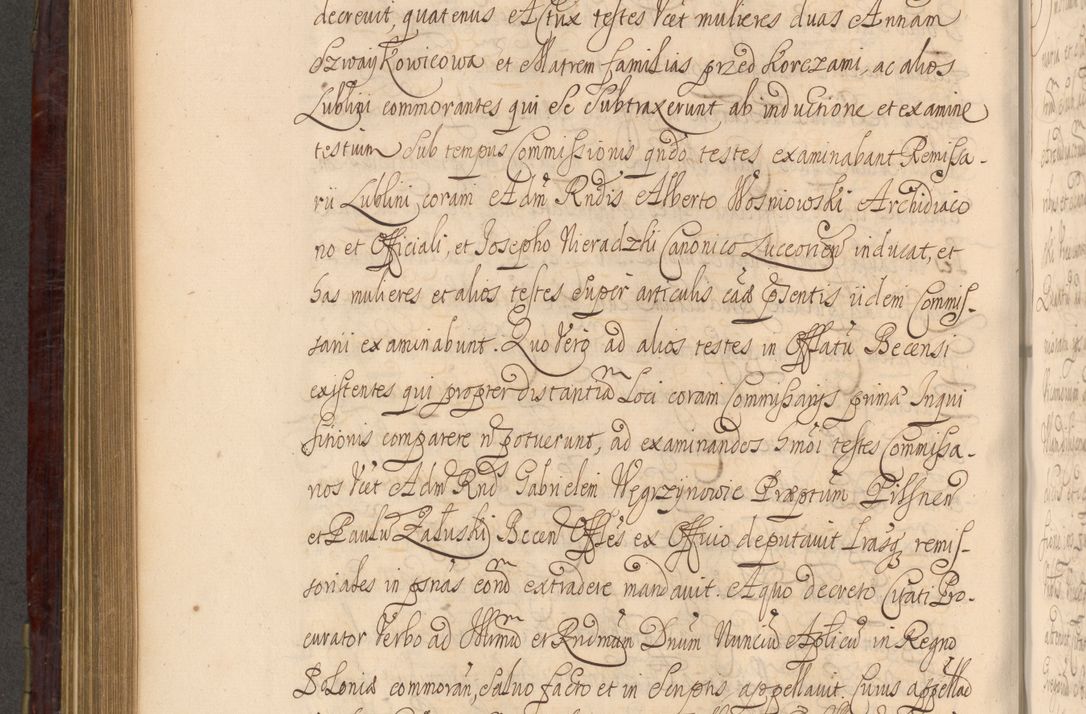 decrevit, quatenus Actrix testes Vcet mulieres duas Annam
Szwaykowicowa et Matrem familias przed Korczami, ac alios
Lublini commorantes qui se subtraxerunt ab inductione et examine
testium sub tempus Commissionis qndo testes examinabant Remissa-
rii Lublini coram Adm Rndis Alberto Wosniowski Archidiaco
no et Officiali, et Josepho Nieradzki Canonico Luceorien inducat, et
has mulieres et alios testes super articulis cau pntis iidem Commis-
sarii examinabunt. Quo Vero ad alios testes in Offlatu Becensi
existentes qui propter distantiam Loci coram Commissarijs prima Inqui
sitionis comparere n potuerunt, ad examinandos hmoi testes Commissa-
rios Vcet Adm Rnds Gabrielem Węgrzynowic Præptum Pilsnen
et Paulu Załuski Becen Offles ex Officio deputavit Lrasq remis-
soriales in psnas eond extradere mandavit. A quo decreto Citati Pro-
curator Verbo ad Illmum et Rndmum Dnum Nunciu Aplicu in Regno
Poloniæ commoran, salvo facto et in scriptis appellavit, huius appellao